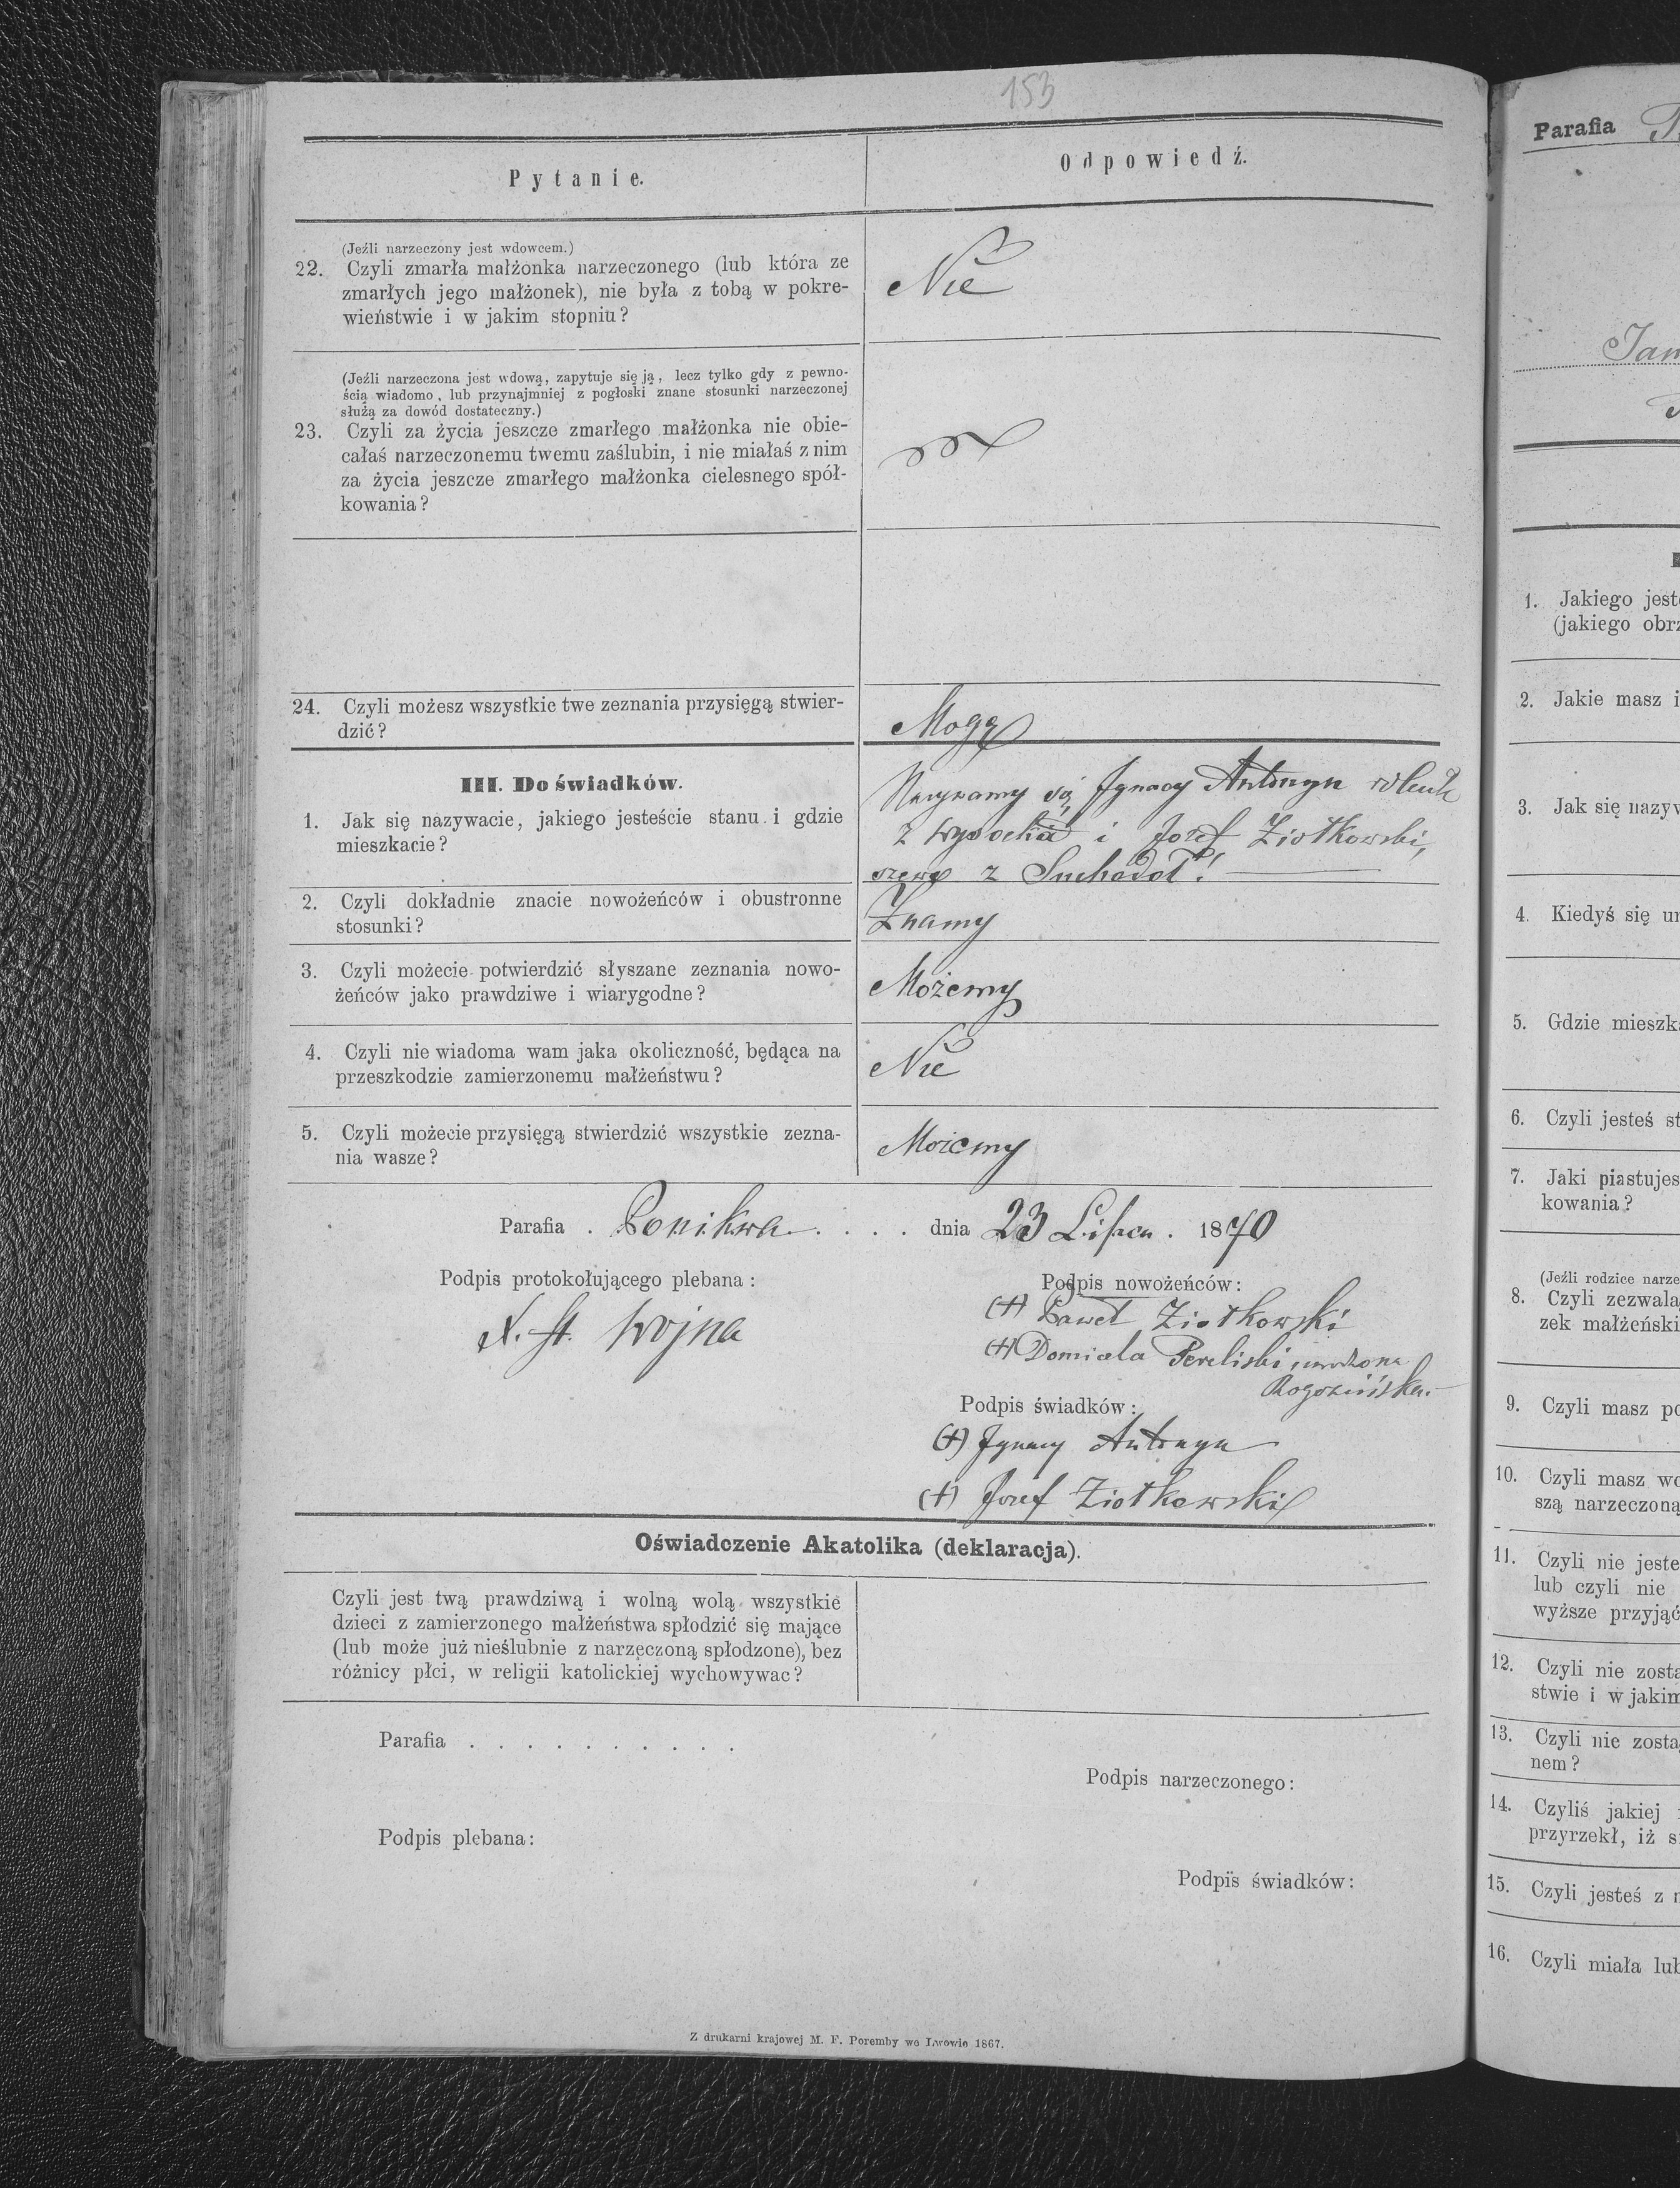 153
Pytanie.
Odpowiedź.
(Jeźli narzeczony jest wdowcem.)
22. Czyli zmarła małżonka narzeczonego (lub która ze
zmarłych jego małżonek), nie była z tobą w pokre-
wieństwie i w jakim stopniu?
Nie
(Jeźli narzeczona jest wdową, zapytuje się ją, lecz tylko gdy z pewno-
ścią wiadomo, lub przynajmniej z pogłoski znane stosunki narzeczonej
służą za dowód dostateczny.)
23. Czyli za życia jeszcze zmarłego małżonka nie obie-
całaś narzeczonemu twemu zaślubin, i nie miałaś z nim
za życia jeszcze zmarłego małżonka cielesnego spół-
kowania?
24. Czyli możesz wszystkie twe zeznania przysięgą stwier-
dzić?
Mogę
III. Do świadków.
1. Jak się nazywacie, jakiego jesteście stanu i gdzie
mieszkacie?
Nazywamy się Ignacy Antonyn rolnik
z Wysocka i Jozef Ziołkowski,
szewc z Suchodoł!
2. Czyli dokładnie znacie nowożeńców i obustronne
stosunki?
Znamy
3. Czyli możecie potwierdzić słyszane zeznania nowo-
żeńców jako prawdziwe i wiarygodne?
Możemy
4. Czyli nie wiadoma wam jaka okoliczność, będąca na
przeszkodzie zamierzonemu małżeństwu?
Nie
5. Czyli możecie przysięgą stwierdzić wszystkie zezna-
nia wasze?
Możemy
Parafia . Ponikwa . . . . dnia 23 Lipca . 1870
Podpis protokołującego plebana:
X. St. Wojna
Podpis nowożeńców:
(+) Paweł Ziołkowski
(+) Domicela urodzona
Rogozińska
Podpis świadków:
(+) Ignacy Antonyn
(+) Jozef Ziołkowski
Oświadczenie Akatolika (deklaracja).
Czyli jest twą prawdziwą i wolną wolą wszystkie
dzieci z zamierzonego małżeństwa spłodzić się mające
(lub może już nieślubnie z narzeczoną spłodzone), bez
różnicy płci, w religii katolickiej wychowywac?
Parafia . . . . . . . . . .
Podpis narzeczonego:
Podpis plebana:
Podpis świadków:
Z drukarni krajowej M. F. Poremby we Lwowie 1867.
Parafia
Jan
1. Jakiego jest
(jakiego obrz
2. Jakie masz i
3. Jak się nazyw
4. Kiedyś się ur
5. Gdzie mieszk
6. Czyli jesteś st
7. Jaki piastujes
kowania?
(Jeźli rodzice narze
8. Czyli zezwala
zek małżeński
9. Czyli masz po
10. Czyli masz wo
szą narzeczoną
11. Czyli nie jeste
lub czyli nie
wyższe przyjąć
12. Czyli nie zosta
stwie i w jakim
13. Czyli nie zosta
nem?
14. Czyliś jakiej
przyrzekł, iż s
15. Czyli jesteś z n
16. Czyli miała lub